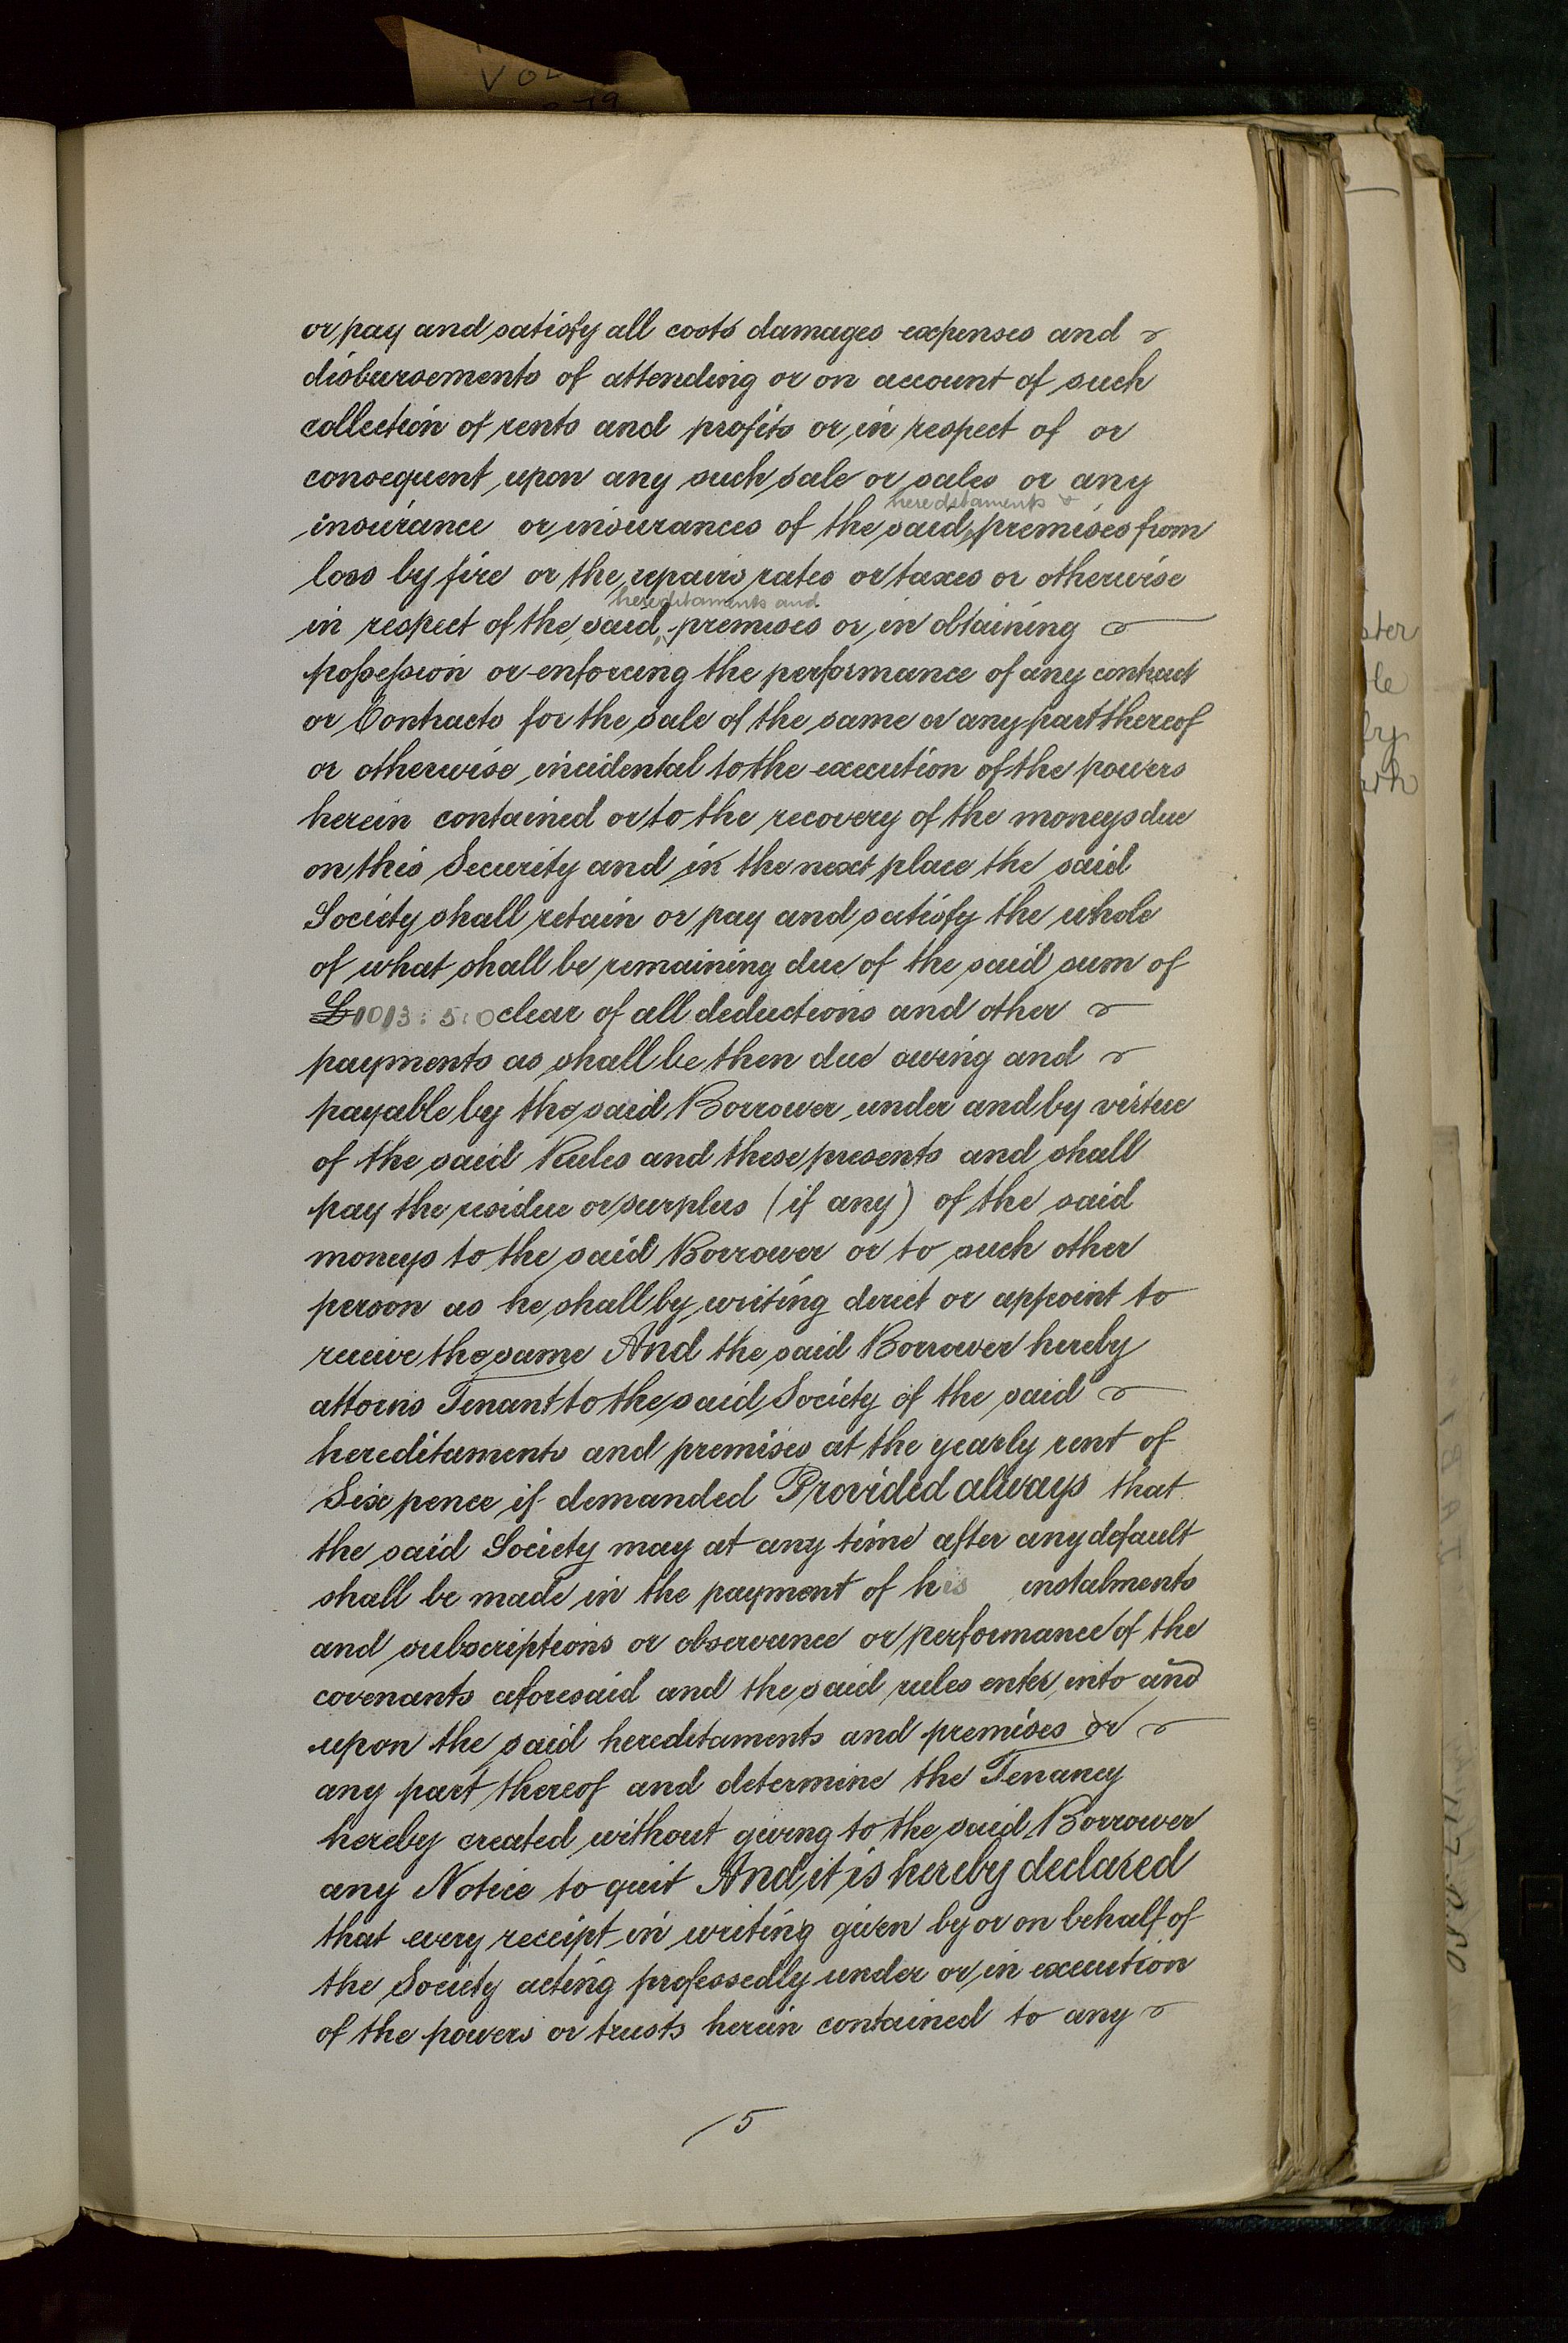 VOL
or pay and satisfy all costs damages expenses and
disbursements of attending or on account of such
collection of rents and profits or in respect of or
consequent upon any such sale or sales or any
hereditaments &
insurance or insurances of the said premises from
loss by fire or the repairs rates or taxes or otherwise
hereditaments and
in respect of the said premises or in obtaining
possession or enforcing the performance of any contract
or Contracts for the sale of the same or any part thereof
or otherwise incidental to the execution of the powers
herein contained or to the recovery of the moneys due
on this Security and in the next place the said
Society shall retain or pay and satisfy the whole
of what shall be remaining due of the said sum of
£1013:5:0 clear of all deductions and other
payments as shall be then due owing and
payable by the said Borrower under and by virtue
of the said Rules and these presents and shall
pay the residue or surplus (if any) of the said
moneys to the said Borrower or to such other
person as he shall by writing direct or appoint to
receive the same And the said Borrower hereby
attorns Tenant to the said Society of the said
hereditaments and premises at the yearly rent of
Six pence if demanded Provided always that
the said Society may at any time after any default
shall be made in the payment of his instalments
and subscriptions or observance or performance of the
covenants aforesaid and the said rules enter into and
upon the said hereditaments and premises or
any part thereof and determine the Tenancy
hereby created without giving to the said Borrower
any Notice to quit And it is hereby declared
that every receipt in writing given by or on behalf of
the Society acting professedly under or in execution
of the powers or trusts herein contained to any
5